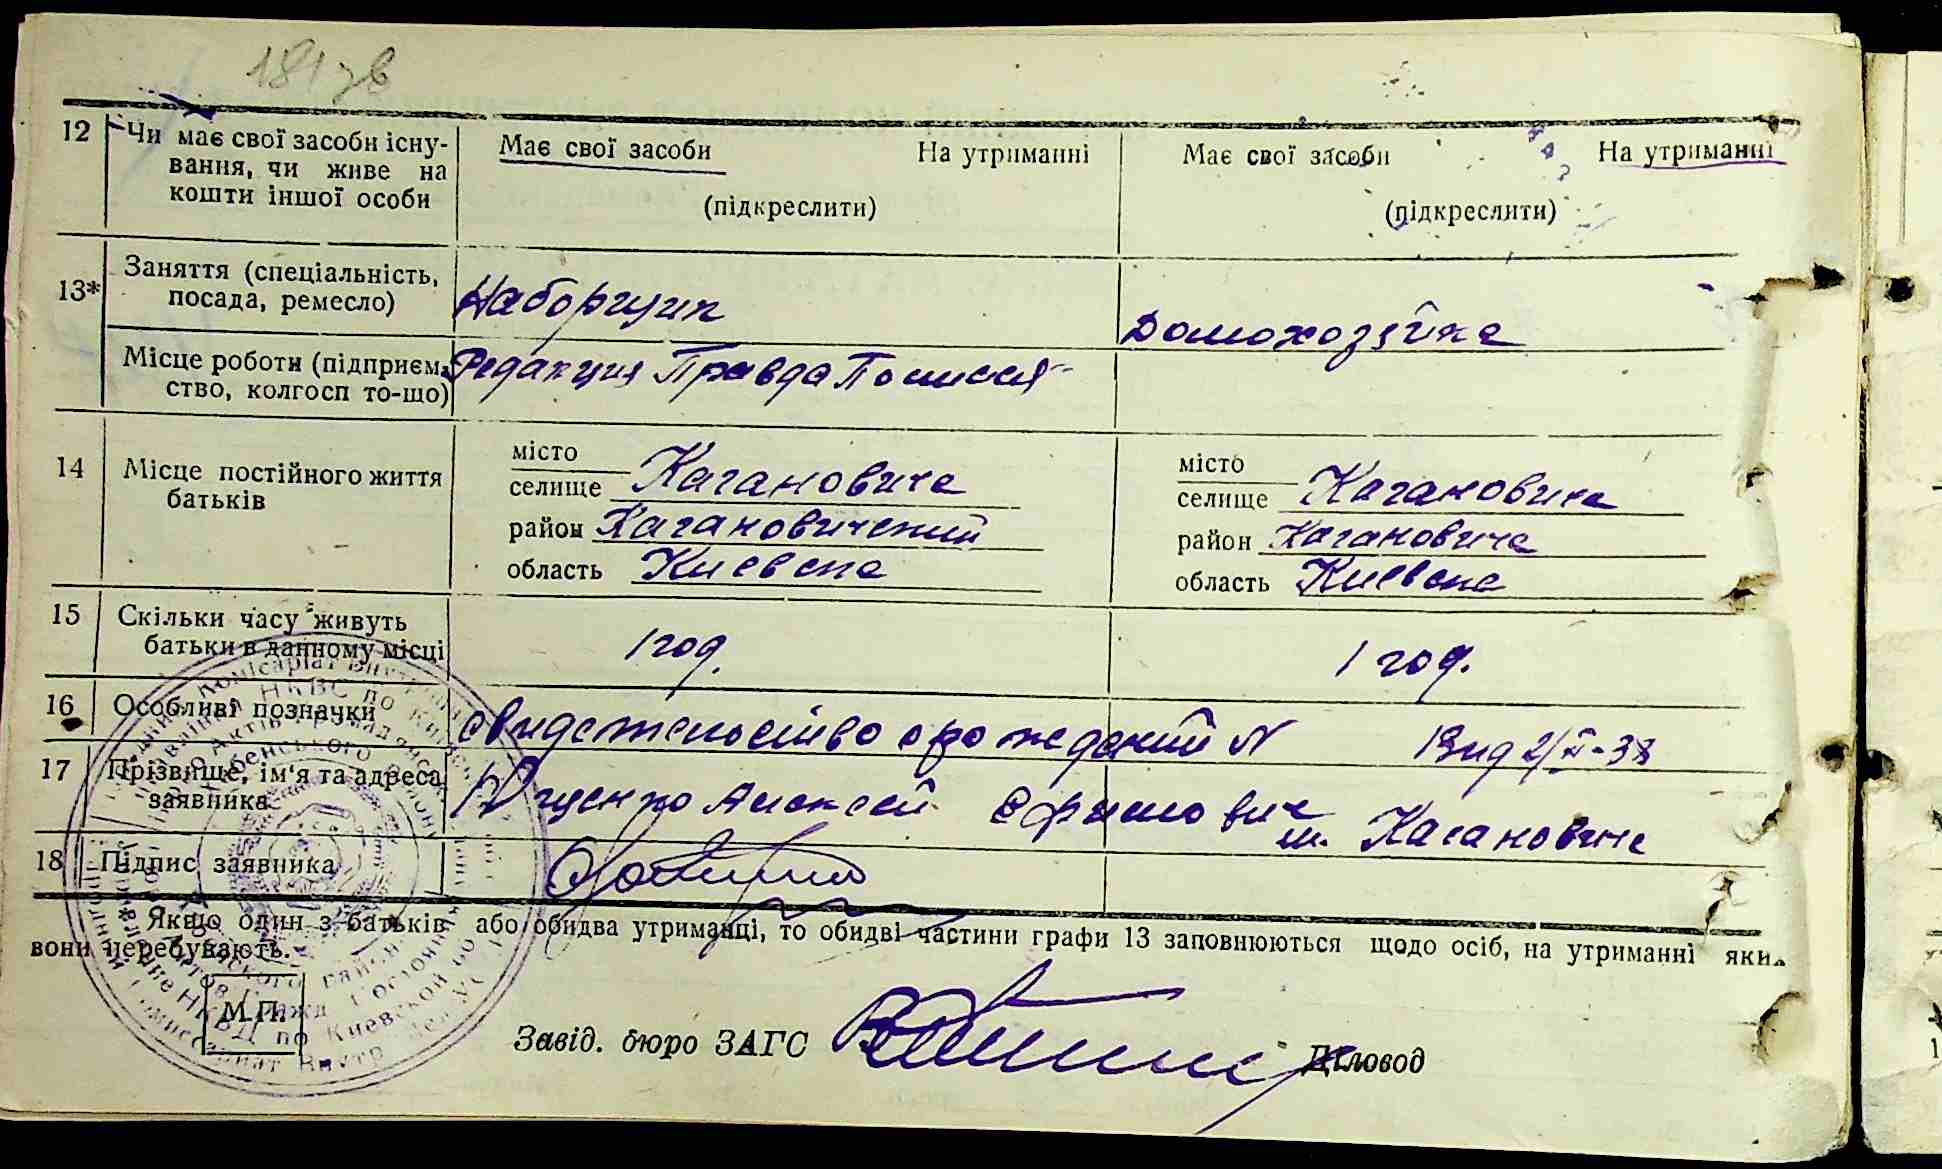 181 зв
12 Чи має свої засоби існу-
вання, чи живе на
кошти іншої особи
Має свої засоби На утриманні
(підкреслити)
Має свої засоби На утриманні
(підкреслити)
13* Заняття (спеціальність,
посада, ремесло)
Наборщик
Домохозяйка
Місце роботи (підприєм-
ство, колгосп то-що)
Редакция Правда Полисся
14 Місце постійного життя
батьків
місто
селище Кагановича
район Кагановический
область Киевска
місто
селище Кагановича
район Кагановича
область Киевска
15 Скільки часу живуть
батьки в данному місці
1 год.
1 год.
16 Особливі позначки
свидетельство о рождений N
17 Прізвище, ім'я та адреса
заявника
Алексей Ефимович
м. Кагановича
18 Підпис заявника
* Якщо один з батьків або обидва утриманці, то обидві частини графи 13 заповнюються щодо осіб, на утриманні яких
вони перебувають.
М.П.
Завід. бюро ЗАГС
Діловод